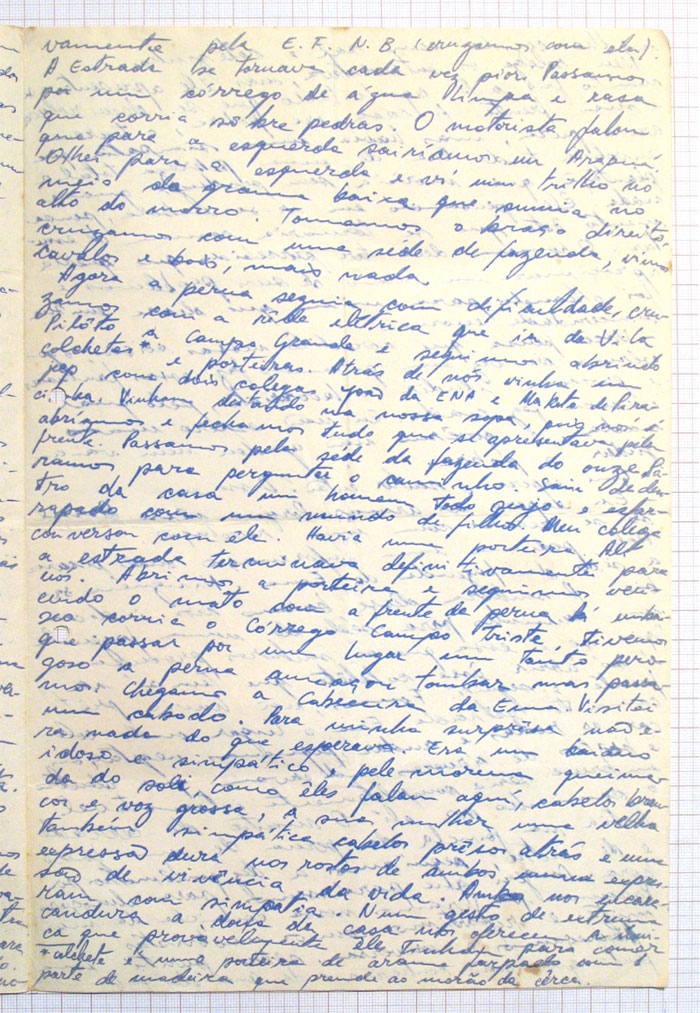 vamente pela E. F. N. B. (cruzamos com ela).
A Estrada se tornava cada vez pior. Passamos
por um córrego de água limpa e rasa
que corria sôbre pedras. O motorista falou
que para a esquerda sairíamos em Arapuá
Olhei para a esquerda e ví um trilho no
meio da grama baixa que sumia no
alto do morro. Tomamos o braço direito,
cruzamos com uma séde de fazenda, vimos
cavalos e bois, mais nada.
Agora a perua seguia com dificuldade, cru-
zamos com a rêde elétrica que ia da Vila
Pilôto a Campo Grande e seguimos abrindo
colchetes* e porteiras. Atrás de nós vinha um
jeep com dois colegas João da ENA e Makita de Pira-
cicaba. Vinham na nossa sopa, pois nós é
abríamos e fechamos tudo que se apresentava pela
frente. Passamos pela séde da fazenda do ônze. Pa-
ramos para perguntar o caminho. Saiu de den-
tro da casa um homem todo sujo e esfar-
rapado com um mundo de filhos. Meu colega
conversou com êle. Havia uma porteira. Alí
a estrada terminava definitivamente para
nós. Abrimos a porteira e seguimos ven-
cendo o mato com a frente da perua. Lá embai-
xo corria o Córrego Campo Triste, tivemos
que passar por um lugar um tanto peri-
goso a perua ameaçou tombar mas passa
mos. Chegamos a Cabeceira da Ema. Visitei
um caboclo. Para minha surprêsa não é
ra nada do que esperava. Era um baiano
idoso e simpático, pele morena queima-
da do soli, como êles falam aquí, cabelos bran
cos e voz grossa, a sua mulher uma velha
também simpática cabelos prêsos atrás e uma
expressão dura nos rostos de ambos numa expres-
são de vivência da vida. Ambos nos
ram com simpatia. Num gesto de extrema
candura a dona da casa nos ofereceu a úni-
ca que provàvelmente êle tinham para comer
*colchete é uma porteira de arame farpado com 1
parte de madeira que prende ao morão da cêrca.